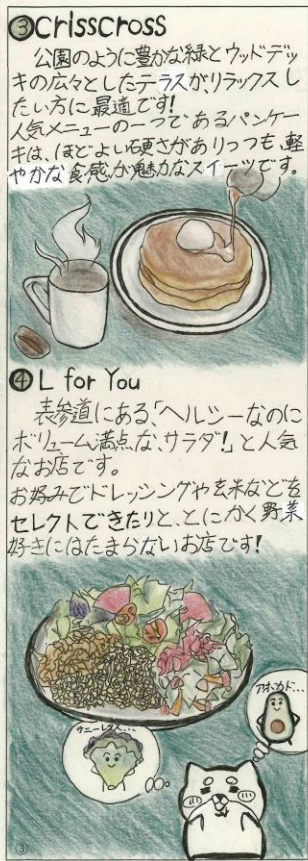 ③crisscross
公園のように豊かな緑とウッドデッ
キの広々としたテラスが、リラックスし
たい方に最適です!
人気メニューの一つであるパンケー
キは、ほどよい硬さがありつつも、軽
やかな食感が魅力なスイーツです。
④L for You
表参道にある、「ヘルシーなのに
ボリューム満点な、サラダ!」と人気
なお店です。
お好みでドレッシングや玄米などを
セレクトできたりと、とにかく野菜
好きにはたまらないお店です!
アボカド...
サニーレタス...
③